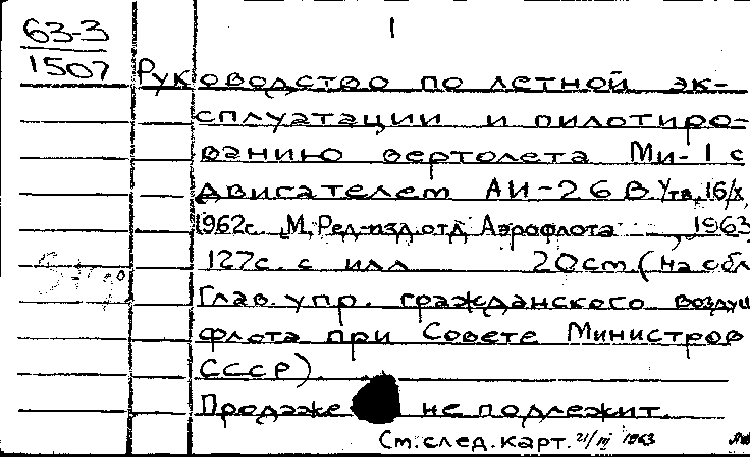 63-3
1
1507
Руководство по летной эк-
сплуатации и пилотиро-
ванию вертолета Ми-1 с
двигателем АИ-26В. Утв. 16/X
1962г. М, Ред-изд. отд Аэрофлота, 1963
127с. с илл 20cm (На обл
Глав. упр. гражданского воздуш
флота при Совете Министров
СССР).
Продаже не подлежит.
См. след. карт. 21/III 1963